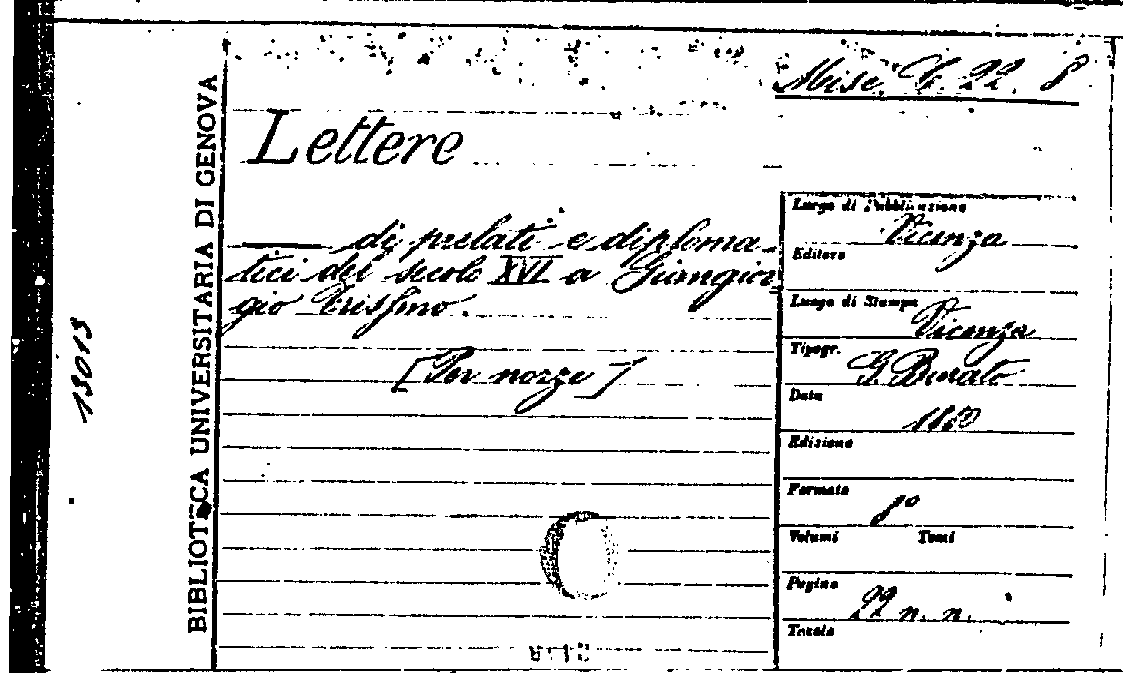 Misc. C. 22. 8
Lettere
di prelati e diploma-
tici del secolo XVI a Giangior-
gio Trissino.
[Per nozze]
BIBLIOTECA UNIVERSITARIA DI GENOVA
13013
Luogo di Pubblicazione
Vicenza
Editore
Luogo di Stampa
Vicenza
Tipogr.
G. Burato
Data
Edizione
Formato
8º
Volumi Tomi
Pagine
22 n. n.
Tavole